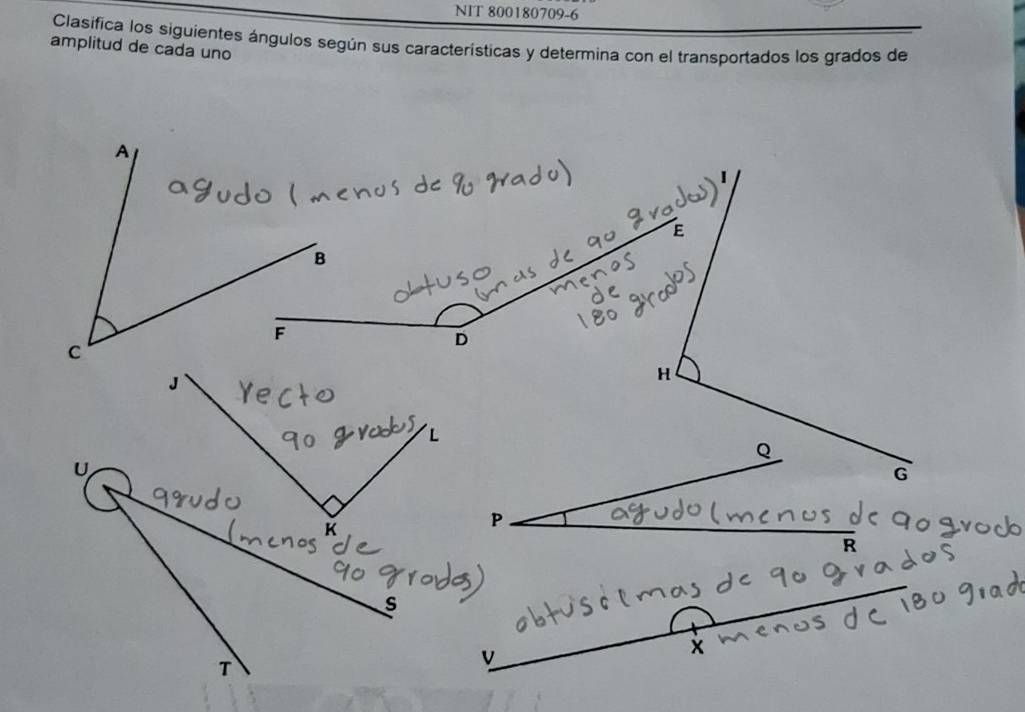 NIT 800180709-6
Clasifica los siguientes ángulos según sus características y determina con el transportados los grados de
amplitud de cada uno
A
agudo (menos de 90 grado)
I
E
B
obtuso (mas de 90 grados)
menos
de
180 grados
F
D
C
H
J
recto
90 grados
L
Q
U
G
agudo
P
agudo (menos de 90 grado
K
(menos de
R
90 grados)
S
obtuso (mas de 90 grados
X
menos de 180 grad
V
T